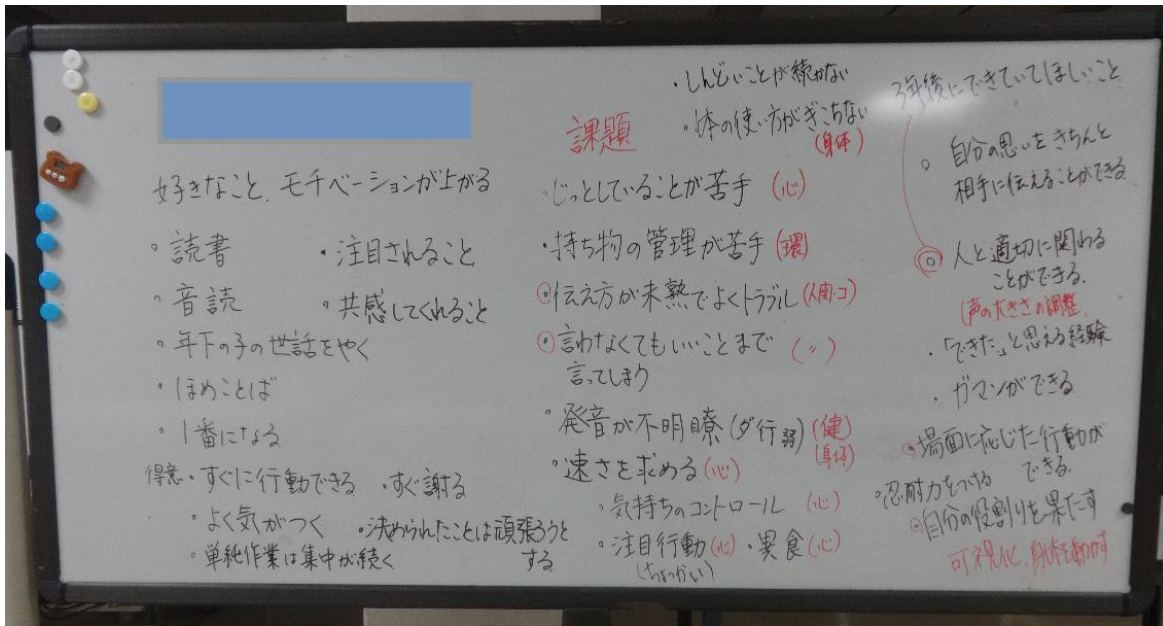 好きなこと、モチベーションが上がる
・読書
・注目されること
・音読
・共感してくれること
・年下の子の世話をやく
・ほめことば
・1番になる
得意・すぐに行動できる
・すぐ謝る
・よく気がつく
・決められたことは頑張ろうと
する
・単純作業は集中が続く
課題
・しんどいことが続かない
・体の使い方がぎこちない
(身体)
・じっとしていることが苦手 (心)
・持ち物の管理が苦手 (環)
◎伝え方が未熟でよくトラブル (人関・コ)
◎言わなくてもいいことまで (〃)
言ってしまう
・発音が不明瞭 (ダ行弱) (健)
(身体)
・速さを求める (心)
・気持ちのコントロール (心)
・注目行動 (心) ・異食 (心)
(ちょっかい)
3年後にできていてほしいこと
。自分の思いをきちんと
相手に伝えることができる
◎人と適切に関わる
ことができる.
(声の大きさの調整
・「できた」と思える経験
・ガマンができる
◎場面に応じた行動が
できる.
・忍耐力をつける
◎自分の役割りを果たす
可視化、身体を動かす